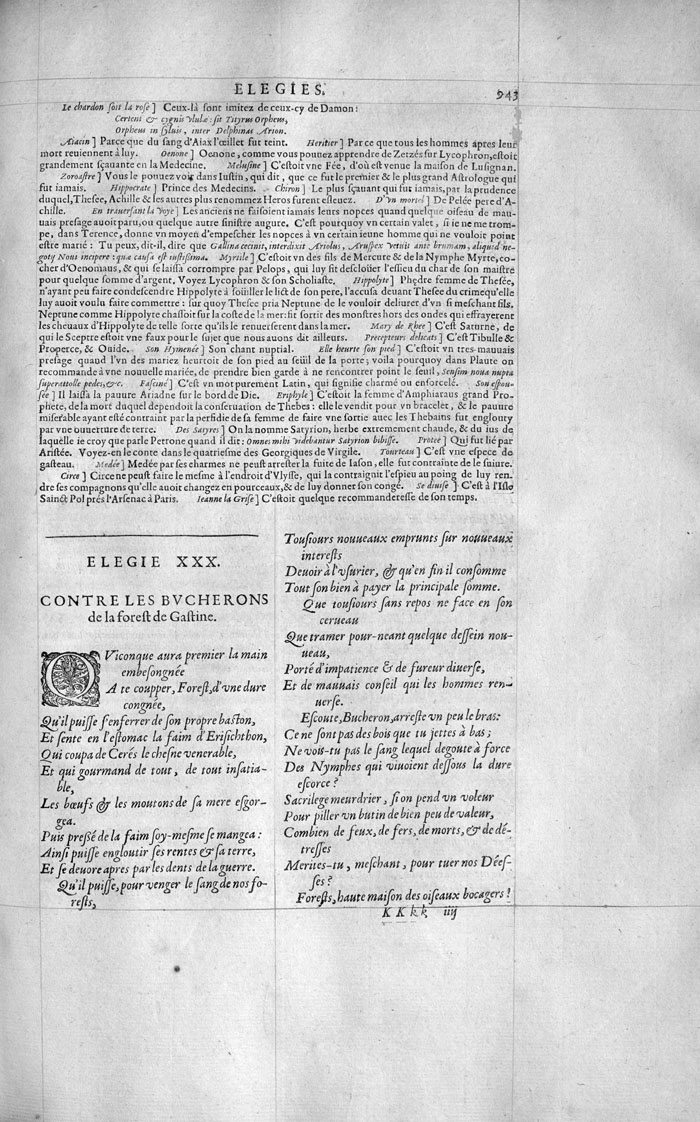 ELEGIES.
943
Le chardon soit la rose] Ceux-là sont imitez de ceux-cy de Damon:
Certent & cygnis vlulæ: sit Tityrus Orpheus,
Orpheus in syluis, inter Delphinas Arion.
Aiacin] Parce que du sang d'Aiax l'œillet fut teint. Heritier] Par ce que tous les hommes apres leur
mort reuiennent à luy. Oenone] Oenone, comme vous pouuez apprendre de Zetzés sur Lycophron, estoit
grandement sçauante en la Medecine. Melusine] C'estoit vne Fée, d'où est venue la maison de Lusignan.
Zoroastre] Vous le pouuez voir dans Iustin, qui dit, que ce fut le premier & le plus grand Astrologue qui
fut iamais. Hippocrate] Prince des Medecins. Chiron] Le plus sçauant qui fut iamais, par la prudence
duquel, Thesee, Achille & les autres plus renommez Heros furent esleuez. D'vn mortel] De Pelée pere d'A-
chille. En trauersant la voye] Les anciens ne faisoient iamais leurs nopces quand quelque oiseau de mau-
uais presage auoit paru, ou quelque autre sinistre augure. C'est pourquoy vn certain valet, si ie ne me trom-
pe, dans Terence, donne vn moyen d'empescher les nopces à vn certain ieune homme qui ne vouloit point
estre marié: Tu peux, dit-il, dire que Gallina cecinit, interdixit Ariolus, Aruspex vetuit ante brumam, aliquid ne-
goty Noui incipere: quæ causa est iustissima. Myrtile] C'estoit vn des fils de Mercure & de la Nymphe Myrte, co-
cher d'Oenomaus, & qui se laissa corrompre par Pelops, qui luy fit desclouer l'essieu du char de son maistre
pour quelque somme d'argent. Voyez Lycophron & son Scholiaste. Hippolyte] Phędre femme de Thesée,
n'ayant peu faire condescendre Hippolyte à soüiller le lict de son pere, l'accusa deuant Thesée du crime qu'elle
luy auoit voulu faire commettre: sur quoy Thesee pria Neptune de le vouloir deliurer d'vn si meschant fils.
Neptune comme Hippolyte chassoit sur la coste de la mer: fit sortir des monstres hors des ondes qui effrayerent
les cheuaux d'Hippolyte de telle sorte qu'ils le renuerserent dans la mer. Mary de Rhee] C'est Saturne, de
qui le Sceptre estoit vne faux pour le sujet que nous auons dit ailleurs. Precepteurs delicats] C'est Tibulle &
Properce, & Ouide. Son Hymenée] Son chant nuptial. Elle heurte son pied] C'estoit vn tres-mauuais
presage quand l'vn des mariez heurtoit de son pied au seüil de la porte; voila pourquoy dans Plaute on
recommande à vne nouuelle mariée, de prendre bien garde à ne rencontrer point le seuil, Sensim noua nupta
superattolle pedes, &c. Fasciné] C'est vn mot purement Latin, qui signifie charmé ou enforcelé. Son espou-
sée] Il laissa la pauure Ariadne sur le bord de Die. Eriphyle] C'estoit la femme d'Amphiaraus grand Pro-
phete, de la mort duquel dependoit la conseruation de Thebes: elle le vendit pour vn bracelet, & le pauure
miserable ayant esté contraint par la perfidie de sa femme de faire vne sortie auec les Thebains fut englouty
par vne ouuerture de terre. Des Satyres] On la nomme Satyrion, herbe extremement chaude, & du ius de
laquelle ie croy que parle Petrone quand il dit: Omnes mihi videbantur Satyrion bibisse. Protee] Qui fut lié par
Aristée. Voyez-en le conte dans le quatriesme des Georgiques de Virgile. Tourteau] C'est vne espece de
gasteau. Medée] Medée par ses charmes ne peust arrester la fuite de Iason, elle fut contrainte de le suiure.
Circe] Circe ne peust faire le mesme à l'endroit d'Vlysse, qui la contraignit l'espieu au poing de luy ren-
dre ses compagnons qu'elle auoit changez en pourceaux, & de luy donner son congé. Se diuise] C'est à l'Isle
Sainct Pol prés l'Arsenac à Paris. Ieanne la Grise] C'estoit quelque recommanderesse de son temps.
ELEGIE XXX.
CONTRE LES BVCHERONS
de la forest de Gastine.
QViconque aura premier la main
embesongnée
A te coupper, Forest, d'vne dure
congnée,
Qu'il puisse s'enferrer de son propre baston,
Et sente en l'estomac la faim d'Erisichthon,
Qui coupa de Cerés le chesne venerable,
Et qui gourmand de tout, de tout insatia-
ble,
Les bœufs & les moutons de sa mere esgor-
gea.
Puis pressé de la faim soy-mesme se mangea:
Ainsi puisse engloutir ses rentes & sa terre,
Et se deuore apres par les dents de la guerre.
Qu'il puisse, pour venger le sang de nos fo-
rests,
Tousiours nouueaux emprunts sur nouueaux
interests
Deuoir à l'vsurier, & qu'en fin il consomme
Tout son bien à payer la principale somme.
Que tousiours sans repos ne face en son
cerueau
Que tramer pour-neant quelque dessein nou-
ueau,
Porté d'impatience & de fureur diuerse,
Et de mauuais conseil qui les hommes ren-
uerse.
Escoute, Bucheron, arreste vn peu le bras:
Ce ne sont pas des bois que tu jettes à bas;
Ne vois-tu pas le sang lequel degoute à force
Des Nymphes qui viuoient dessous la dure
escorce?
Sacrilege meurdrier, si on pend vn voleur
Pour piller vn butin de bien peu de valeur,
Combien de feux, de fers, de morts, & de dé-
tresses
Merites-tu, meschant, pour tuer nos Dées-
ses?
Forests, haute maison des oiseaux bocagers!
KKkk iiij